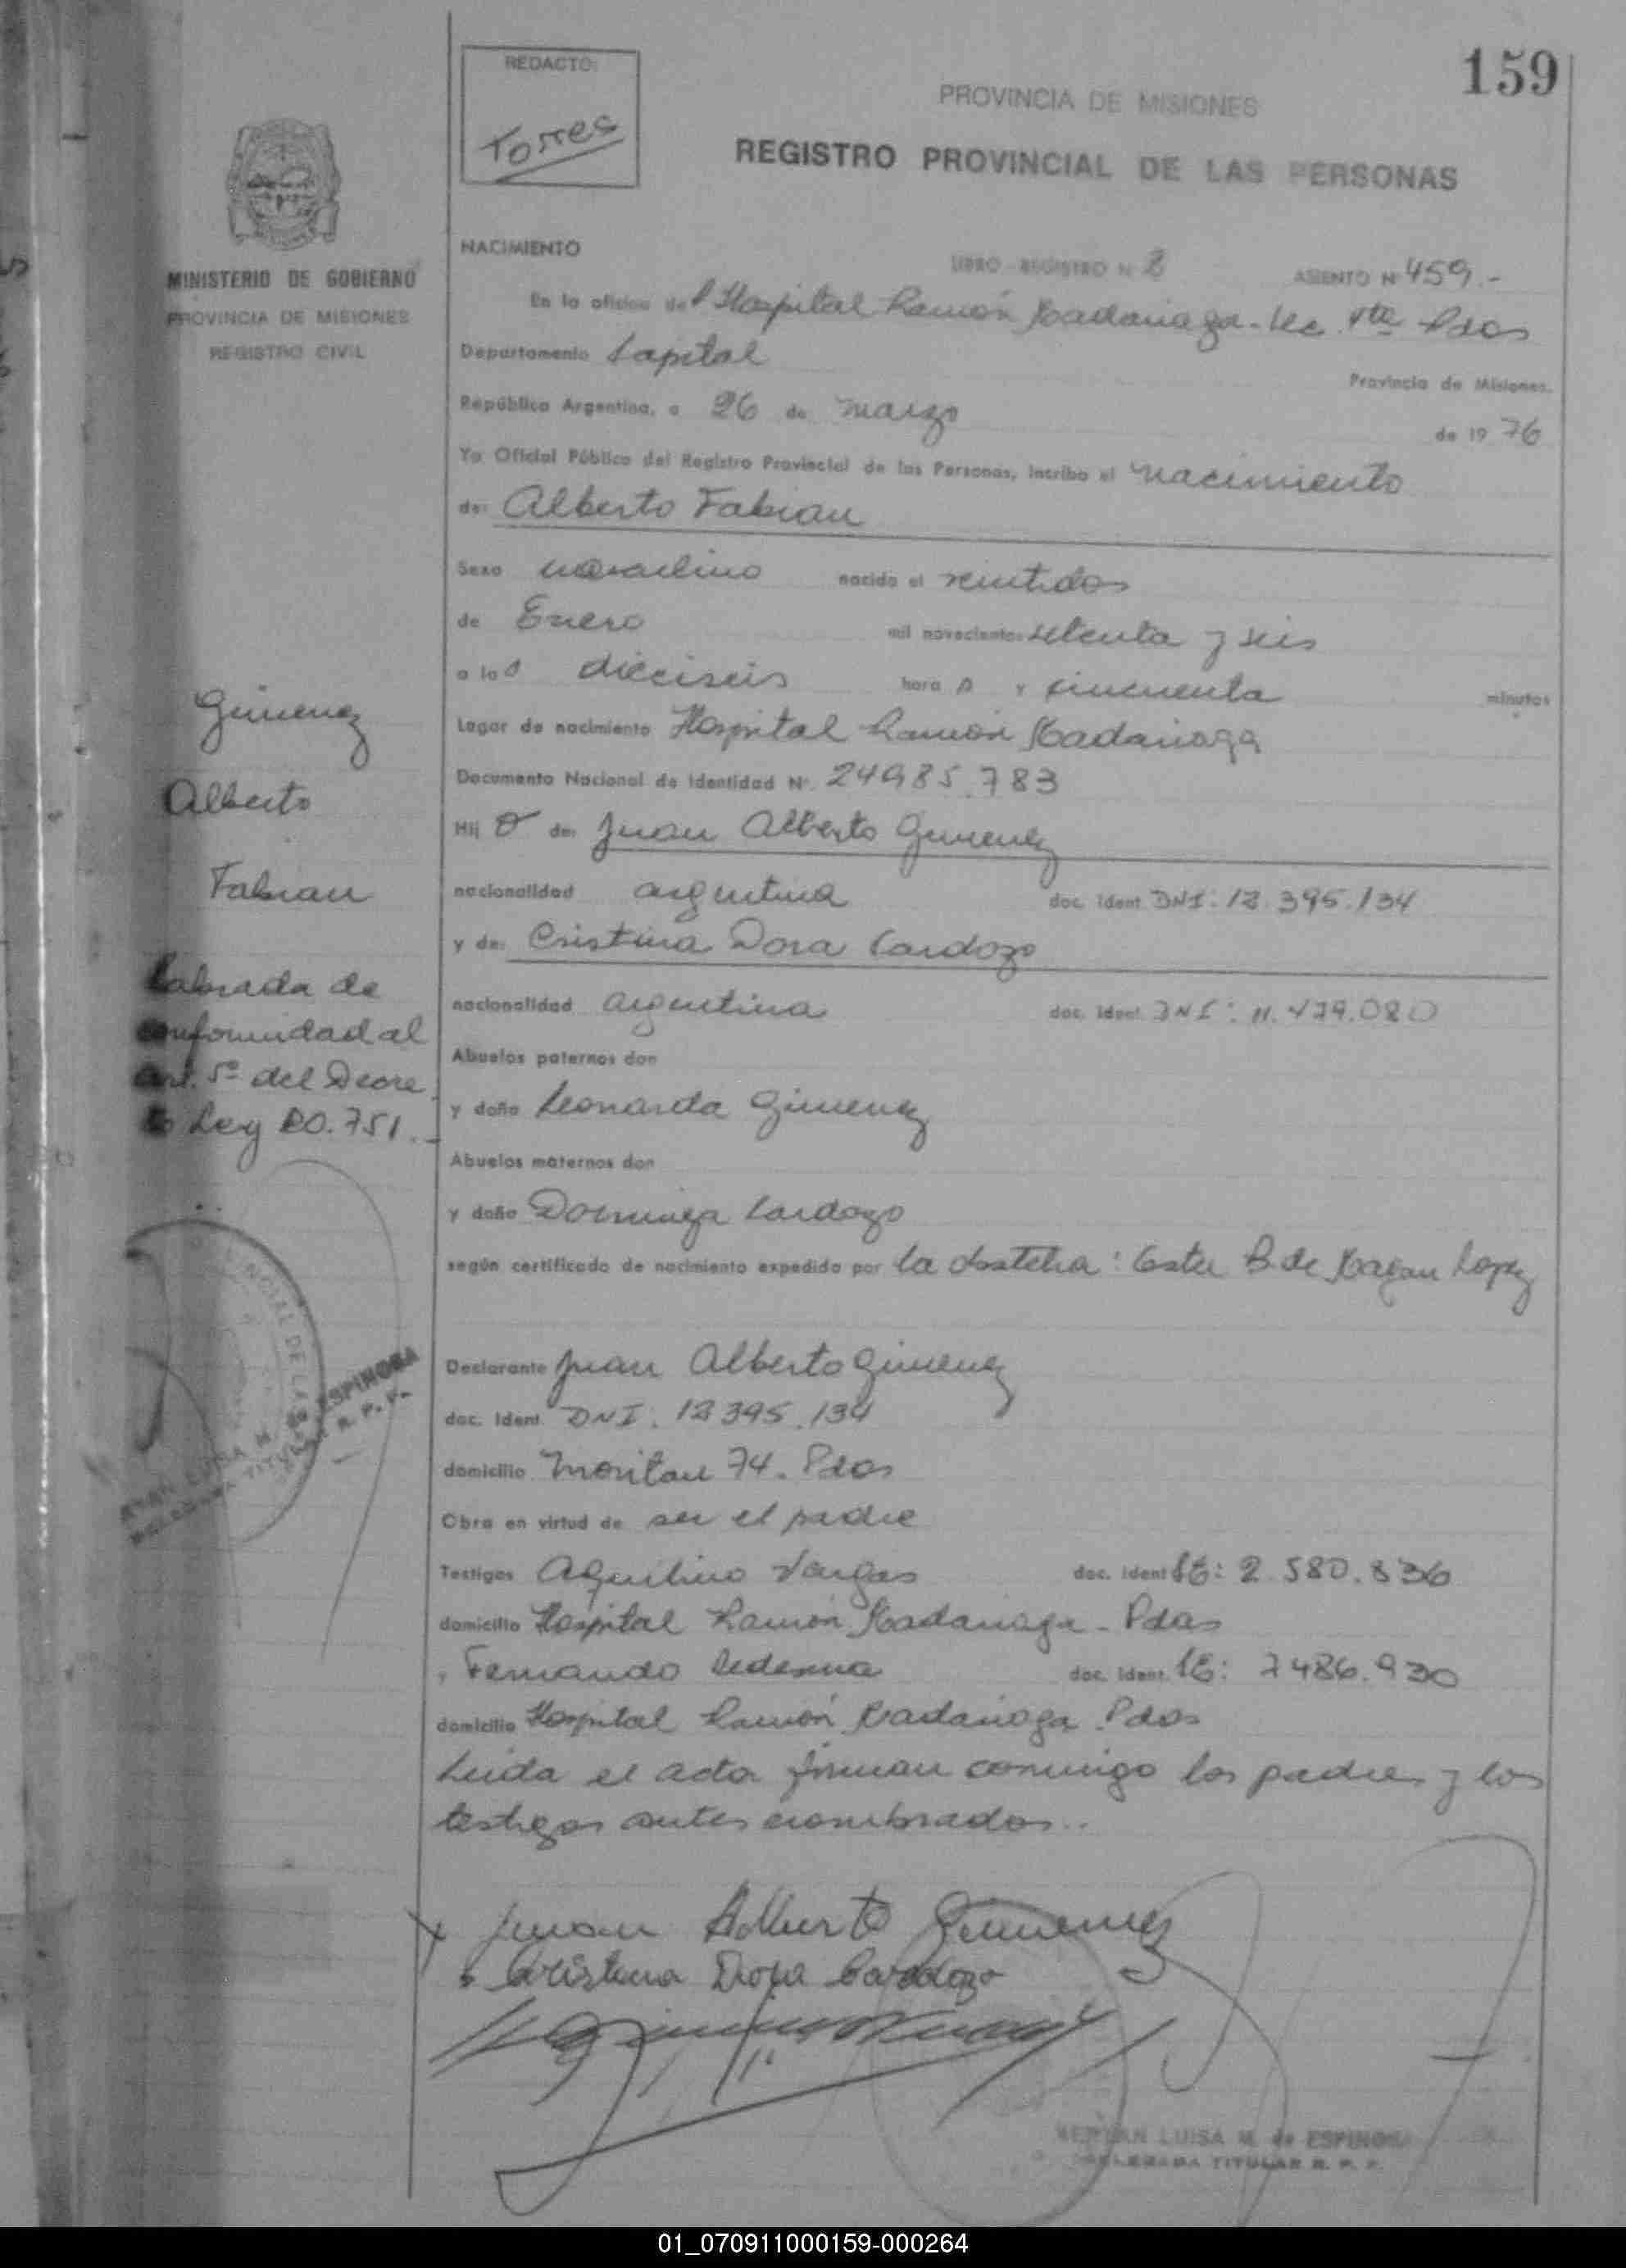 159
REDACTO:
Torres
PROVINCIA DE MISIONES
REGISTRO PROVINCIAL DE LAS PERSONAS
MINISTERIO DE GOBIERNO
PROVINCIA DE MISIONES
REGISTRO CIVIL
NACIMIENTO
LIBRO REGISTRO N 2 ASIENTO Nº 459.-
En la oficina del Hospital Ramón Madariaga - Sec. Vta Pdas
Departamento Capital
Provincia de Misiones.
República Argentina, a 26 de marzo
de 19 76
Yo Oficial Público del Registro Provincial de las Personas, incribo el nacimiento
de: Alberto Fabian
Sexo masculino nacido el veintidos
de Enero mil novecientos setenta y seis
a las dieciseis hora s y cincuenta minutos
Lugar de nacimiento Hospital Ramón Madariaga
Documento Nacional de Identidad Nº. 24985.783
Hij o de: Juan Alberto Gimenez
nacionalidad argentina doc. Ident. DNI: 12.395.134
y de: Cristina Dora Cardozo
nacionalidad argentina doc. Ident. DNI: 11.479.080
Abuelos paternos don
y doña Leonarda Gimenez
Abuelos maternos don
y doña Dominga Cardozo
según certificado de nacimiento expedido por la obstetra: Ester B. de Lopez
Gimenez
Alberto
Fabian
Labrada de
conformidad al
art. 5º del Decre
to Ley 20.751.-
Declarante Juan Alberto Gimenez
doc. Ident. DNI. 12395.134
domicilio Moritan 74. Pdas
Obra en virtud de ser el padre
Testigos Aquilino Vargas doc. Ident LE: 2.580.836
domicilio Hospital Ramón Madariaga - Pdas
y Fernando Ledesma doc. Ident. LE: 7486.930
domicilio Hospital Ramón Madariaga. Pdas
Leida el acta firman conmigo los padres y los
testigos antes nombrados.-
Juan Alberto Gimenez
Cristina Dora Cardozo
LUISA M. de ESPINOSA
DELEGADA TITULAR R. P. P.
LUISA M. de ESPINOSA
DELEGADA TITULAR R. P. P.
01_070911000159-000264